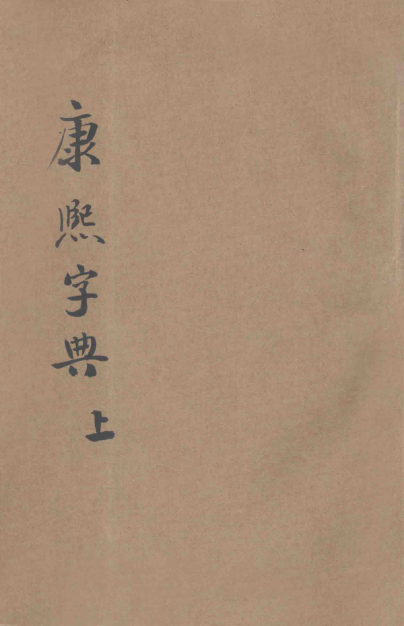 康熙字典
上